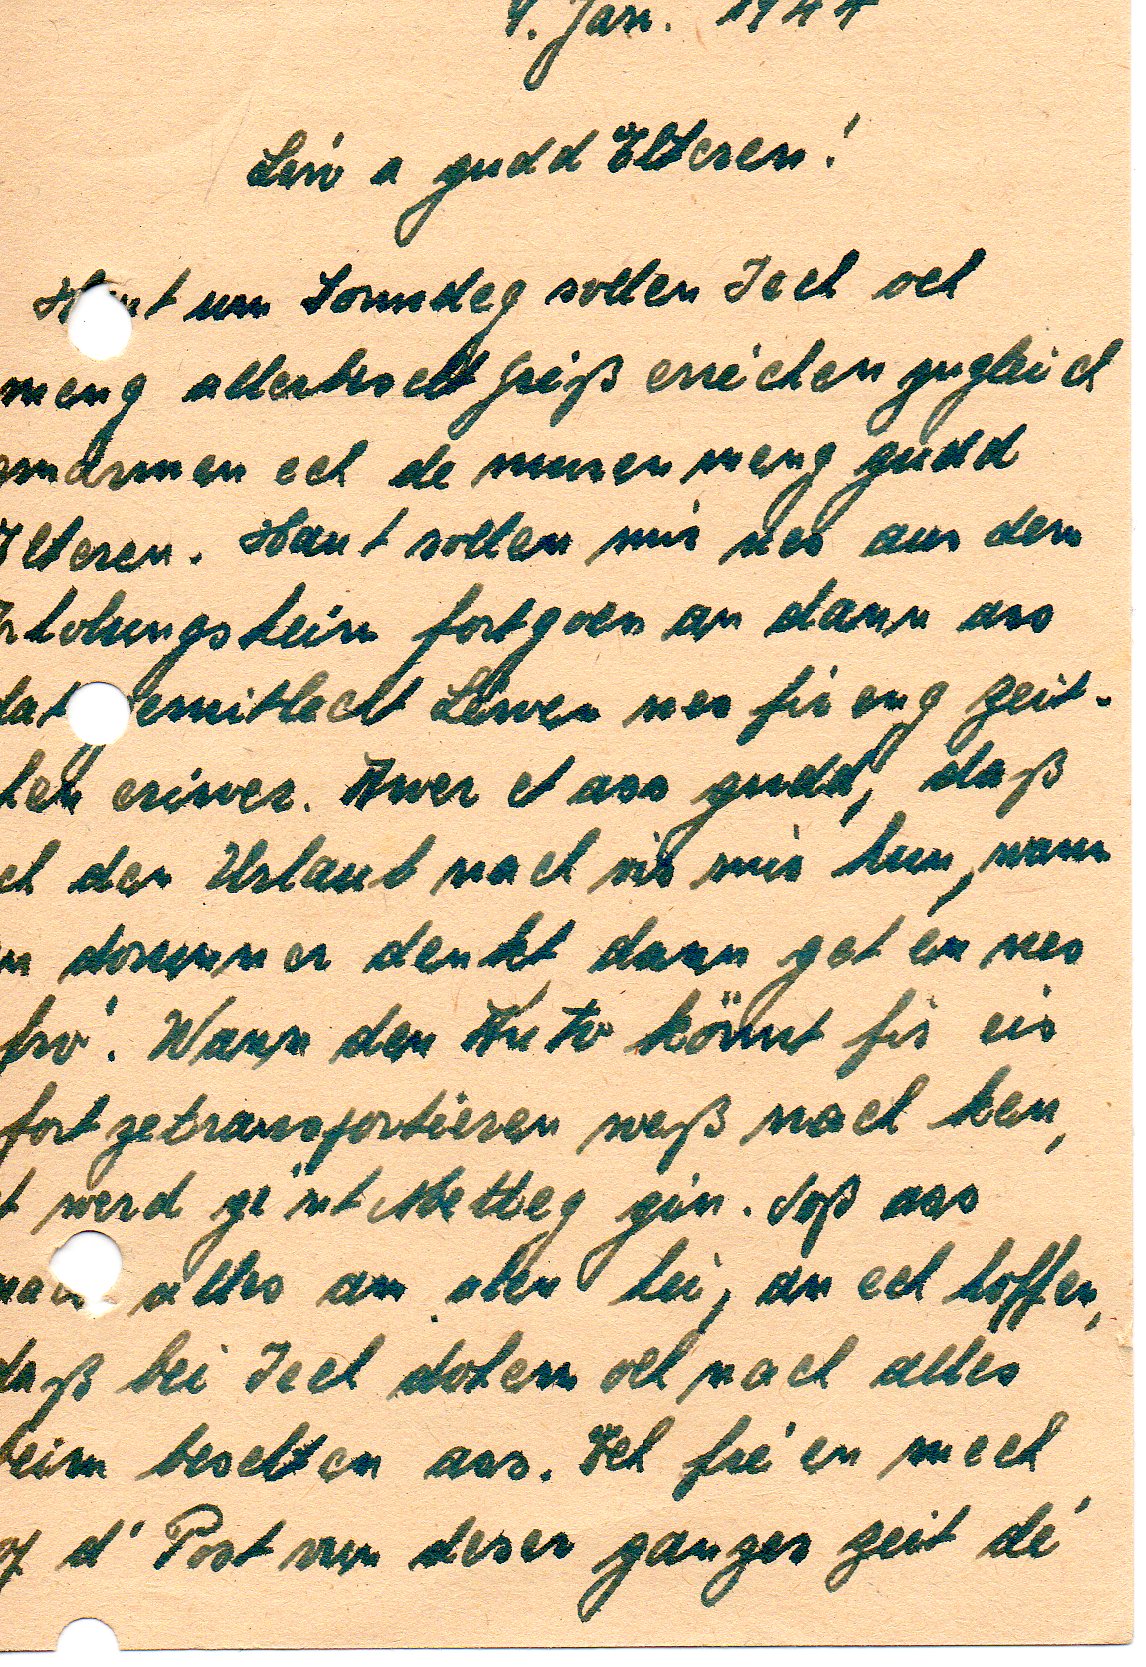 9. Jan. 1944
Leiw a gudd Elteren!
Haut um Sonndeg sollen Iech och
meng allerbescht Griß erréchen zugleich
ech de muren meng gudd
Elteren. Haut sollen mir nes aus dem
Erholungsheim fortgoen an dann ass
dat gemitlecht Liewen nes fir eng Zeit-
chen eriwer. Awer et ass gudd, daß
ech den Urlaub nach vir mir hun, wann
en dorunner denkt dann get en nes
fro'. Wann den Auto kömmt fir eis
fort ze transportieren weß nach ken,
et werd ge'nt Metteg gin. Soß ass
nach alles am alen hei, an ech hoffen,
daß bei Iech dohem och nach alles
beim beschten ass. Ech fré en mech
of d' Post vun deser ganzer Zeit dé